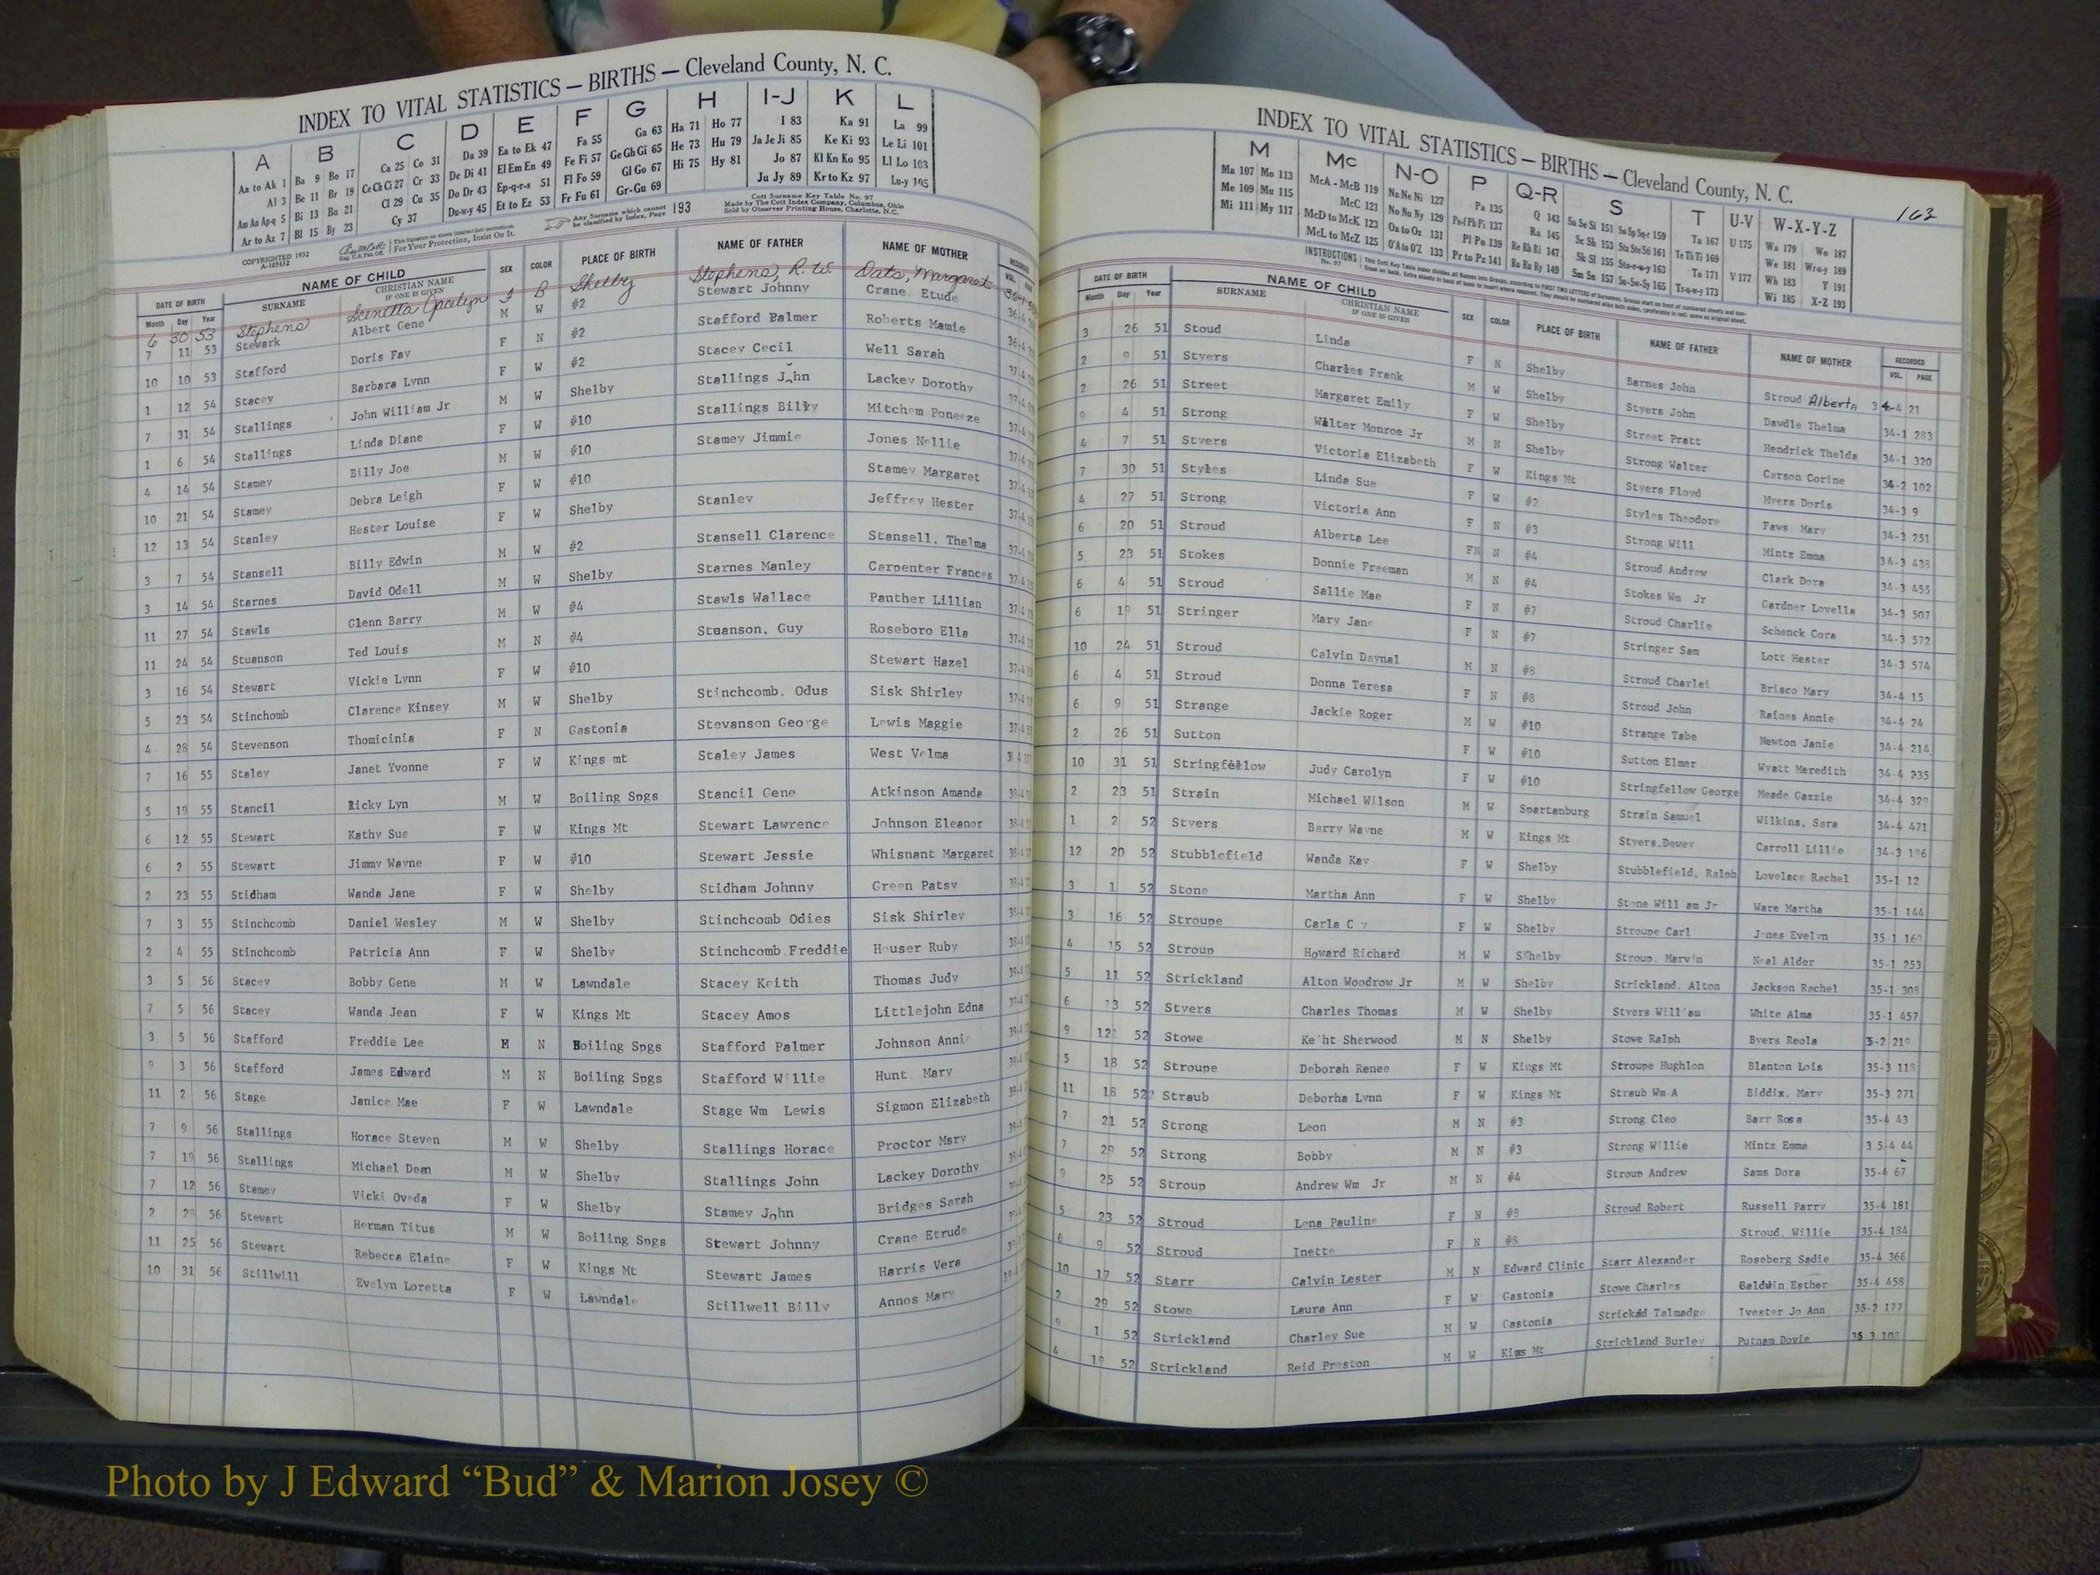 INDEX TO VITAL STATISTICS — BIRTHS — Cleveland County, N. C.
A B C D E F G H I-J K L
Aa to Ak 1 Ba 9 Bo 17 Ca 25 Co 31 Da 39 Ea to Ek 47 Fa 55 Ga 63 Ha 71 Ho 77 I 83 Ka 91 La 99
Al 3 Be 11 Br 19 Ce Ch Ci 27 Cr 33 De Di 41 El Em En 49 Fe Fi 57 Ge Gh Gi 65 He 73 Hu 79 Ja Je Ji 85 Ke Ki 93 Le Li 101
Am An Ap-q 5 Bi 13 Bu 21 Cl 29 Cu 35 Do Dr 43 Ep-q-r-s 51 Fl Fo 59 Gl Go 67 Hi 75 Hy 81 Jo 87 Kl Kn Ko 95 Ll Lo 103
Ar to Az 7 Bl 15 By 23 Cy 37 Du-w-y 45 Et to Ez 53 Fr Fu 61 Gr-Gu 69 Ju Jy 89 Kr to Kz 97 Lu-y 105
COPYRIGHTED 1932
A-103632
This Signature on sheets insures their correctness.
For Your Protection, Insist On It.
Any Surname which cannot be classified by Index, Page 193
Cott Surname Key Table No. 97
Made by The Cott Index Company, Columbus, Ohio
Sold by Observer Printing House, Charlotte, N. C.
DATE OF BIRTH NAME OF CHILD SEX COLOR PLACE OF BIRTH NAME OF FATHER NAME OF MOTHER
Month Day Year SURNAME CHRISTIAN NAME IF ONE IS GIVEN
6 30 53 Stephens Jocelyn F B Shelby Stephens, R. W. Oats, Margaret
7 11 53 Stewark Albert Gene M W #2 Stewart Johnny Crane Etude
10 10 53 Stafford Doris Fay F N #2 Stafford Palmer Roberts Mamie
1 12 54 Stacey Barbara Lynn F W #2 Stacey Cecil Well Sarah
7 31 54 Stallings John William Jr M W Shelby Stallings John Lackey Dorothy
1 6 54 Stallings Linda Diane F W #10 Stallings Billy Mitchem Poneeze
4 14 54 Stamey Billy Joe M W #10 Stamey Jimmie Jones Nellie
10 21 54 Stamey Debra Leigh F W #10 Stamey Margaret
12 13 54 Stanley Hester Louise F W Shelby Stanley Jeffrey Hester
3 7 54 Stansell Billy Edwin M W #2 Stansell Clarence Stansell, Thelma
3 14 54 Starnes David Odell M W Shelby Starnes Manley Carpenter Frances
11 27 54 Stawls Glenn Barry M W #4 Stawls Wallace Panther Lillian
11 24 54 Stuanson Ted Louis M N #4 Stuanson, Guy Roseboro Ella
3 16 54 Stewart Vickie Lynn F W #10 Stewart Hazel
5 23 54 Stinchomb Clarence Kinsey M W Shelby Stinchcomb. Odus Sisk Shirley
4 28 54 Stevenson Thomicinia F N Gastonia Stevanson George Lewis Maggie
7 16 55 Staley Janet Yvonne F W Kings mt Staley James West Velma
5 19 55 Stancil Ricky Lyn M W Boiling Spgs Stancil Gene Atkinson Amanda
6 12 55 Stewart Kathy Sue F W Kings Mt Stewart Lawrence Johnson Eleanor
6 2 55 Stewart Jimmy Wayne F W #10 Stewart Jessie Whisnant Margaret
2 23 55 Stidham Wanda Jane F W Shelby Stidham Johnny Green Patsy
7 3 55 Stinchcomb Daniel Wesley M W Shelby Stinchcomb Odies Sisk Shirley
2 4 55 Stinchcomb Patricia Ann F W Shelby Stinchcomb Freddie Houser Ruby
3 5 56 Stacey Bobby Gene M W Lawndale Stacey Keith Thomas Judy
7 5 56 Stacey Wanda Jean F W Kings Mt Stacey Amos Littlejohn Edna
3 5 56 Stafford Freddie Lee M N Boiling Spgs Stafford Palmer Johnson Annie
9 3 56 Stafford James Edward M N Boiling Spgs Stafford Willie Hunt Mary
11 2 56 Stage Janice Mae F W Lawndale Stage Wm Lewis Sigmon Elizabeth
7 9 56 Stallings Horace Steven M W Shelby Stallings Horace Proctor Mary
7 19 56 Stallings Michael Dean M W Shelby Stallings John Lackey Dorothy
7 12 56 Stamey Vicki Oveda F W Shelby Stamey John Bridges Sarah
2 29 56 Stewart Herman Titus M W Boiling Spgs Stewart Johnny Crane Etrude
11 25 56 Stewart Rebecca Elaine F W Kings Mt Stewart James Harris Vera
10 31 56 Stillwill Evelyn Loretta F W Lawndale Stillwell Billy Annos Mary
INDEX TO VITAL STATISTICS — BIRTHS — Cleveland County, N. C.
163
M Mc N-O P Q-R S T U-V W-X-Y-Z
Ma 107 Mo 113 McA - McB 119 Na Ne Ni 127 Pa 135 Q 143 Sa Se Si 151 So Sp Sq-r 159 Ta 167 U 175 Wa 179 Wo 187
Me 109 Mu 115 McC 121 No Nu Ny 129 Pe-f Ph Pi 137 Ra 145 Sc Sh 153 Sta Ste Sti 161 Te Th Ti 169 We 181 Wr-o-y 189
Mi 111 My 117 McD to McK 123 Oa to Oz 131 Pl Po 139 Re Rh Ri 147 Sk Sl 155 Sto-r-w-y 163 To 171 V 177 Wh 183 Y 191
McL to McZ 125 O'A to O'Z 133 Pr to Pz 141 Ro Ru Ry 149 Sm Sn 157 Su-Sw-Sy 165 Tr-u-w-y 173 Wi 185 X-Z 193
INSTRUCTIONS No. 97
DATE OF BIRTH NAME OF CHILD SEX COLOR PLACE OF BIRTH NAME OF FATHER NAME OF MOTHER RECORDED
Month Day Year SURNAME CHRISTIAN NAME IF ONE IS GIVEN VOL. PAGE
3 26 51 Stoud Linda F N Shelby Barnes John Stroud Alberta 34-4 21
2 9 51 Styers Charles Frank M W Shelby Styers John Dawdle Thelma 34-1 283
2 26 51 Street Margaret Emily F W Shelby Street Pratt Hendrick Thelda 34-1 320
9 4 51 Strong Walter Monroe Jr M N Shelby Strong Walter Carson Corine 34-2 102
4 7 51 Styers Victoria Elizabeth F W Kings Mt Styers Floyd Myers Doris 34-3 9
7 30 51 Styles Linda Sue F W #2 Styles Theodore Faws. Mary 34-3 251
4 27 51 Strong Victoria Ann F N #3 Strong Will Mintz Emma 34-3 438
6 20 51 Stroud Alberta Lee FN N #4 Stroud Andrew Clark Dora 34-3 455
5 23 51 Stokes Donnie Freeman M N #4 Stokes Wm Jr Gardner Lovella 34-3 507
6 4 51 Stroud Sallie Mae F N #7 Stroud Charlie Schenck Cora 34-3 572
6 19 51 Stringer Mary Jane F N #7 Stringer Sam Lott Hester 34-3 574
10 24 51 Stroud Calvin Daynal M N #8 Stroud Charlei Brisco Mary 34-4 15
6 4 51 Stroud Donna Teresa F N #8 Stroud John Raines Annie 34-4 24
6 9 51 Strange Jackie Roger M W #10 Strange Tabe Newton Janie 34-4 214
2 26 51 Sutton F W #10 Sutton Elmer Wyatt Meredith 34-4 235
10 31 51 Stringfellow Judy Carolyn F W #10 Stringfellow George Meade Gazzie 34-4 329
2 23 51 Strain Michael Wilson M W Spartanburg Strain Samuel Wilkins. Sara 34-4 471
1 2 52 Styers Barry Wayne M W Kings Mt Styers.Dewey Carroll Lillie 34-3 196
12 20 52 Stubblefield Wanda Kay F W Shelby Stubblefield, Ralph Lovelace Rachel 35-1 12
3 1 52 Stone Martha Ann F W Shelby Stone Will am Jr Ware Martha 35-1 144
3 16 52 Stroupe Carla F W Shelby Stroupe Carl Jones Evelyn 35-1 169
4 15 52 Stroup Howard Richard M W Shelby Stroup. Marvin Neal Alder 35-1 253
5 11 52 Strickland Alton Woodrow Jr M W Shelby Strickland. Alton Jackson Rachel 35-1 308
6 13 52 Styers Charles Thomas M W Shelby Styers William White Alma 35-1 457
9 12 52 Stowe Ke'ht Sherwood M N Shelby Stowe Ralph Byers Reola 5-2 219
5 18 52 Stroupe Deborah Renee F W Kings Mt Stroupe Hughlon Blanton Lois 35-3 113
11 18 52 Straub Deborha Lynn F W Kings Mt Straub Wm A Biddix. Mary 35-3 271
7 21 52 Strong Leon M N #3 Strong Cleo Barr Rosa 35-4 43
7 29 52 Strong Bobby M N #3 Strong Willie Mintz Emma 3 5-4 44
9 25 52 Stroup Andrew Wm Jr M N #4 Stroup Andrew Sams Dora 35-4 67
5 23 52 Stroud Lena Pauline F N #8 Stroud Robert Russell Parry 35-4 181
6 9 52 Stroud Inette F N #8 Stroud. Willie 35-4 184
10 17 52 Starr Calvin Lester M N Edward Clinic Starr Alexander Roseberg Sadie 35-4 366
2 29 52 Stowe Laura Ann F W Gastonia Stowe Charles Baldwin Esther 35-4 458
9 1 52 Strickland Charley Sue M W Gastonia Strickad Talmadge Ivester Jo Ann 35-2 177
4 19 52 Strickland Reid Preston M W Kings Mt Strickland Burley Putnam Dovie 35 3 108
Photo by J Edward “Bud” & Marion Josey ©